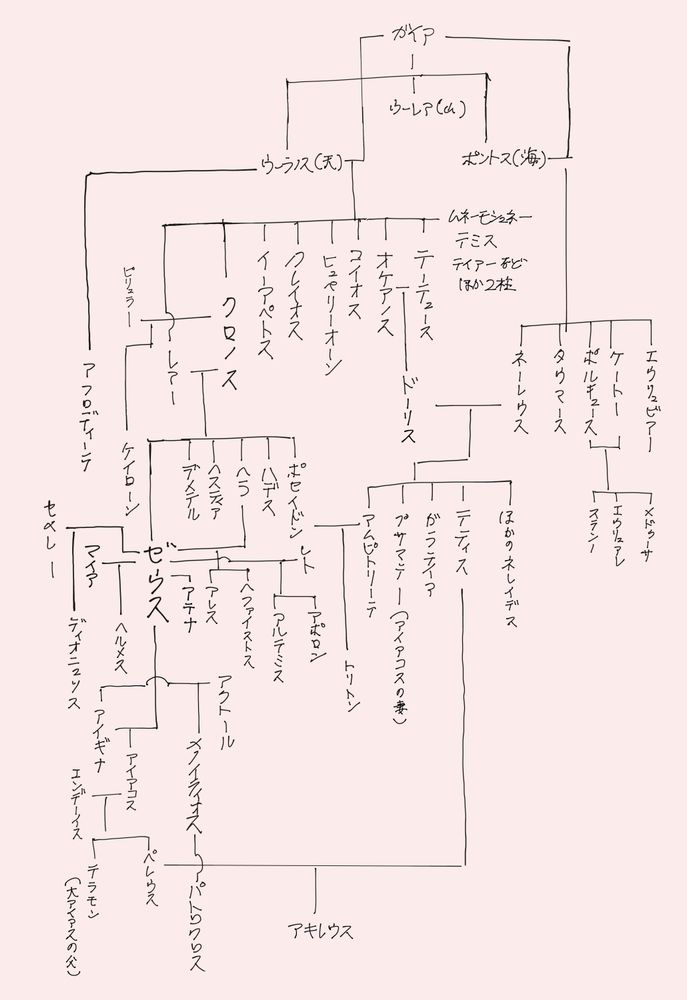 ガイア
ウーレア(山)
ウーラノス(天)
ポントス(海)
ムネーモシュネー
テミス
テイアーなど
ほか2柱
ピリュラー
クロノス
イーアペトス
クレイオス
ヒュペリーオーン
コイオス
オケアノス
テーテュース
レアー
アフロディーテ
ケイローン
ドーリス
ネーレウス
タウマース
ポルキュース
ケートー
エウリュビアー
デメテル
ヘスティア
ヘラ
ハデス
ポセイドン
ステンノ
エウリュアレ
メドゥーサ
セメレー
マイア
ゼウス
レト
アムピトリーテ
プサマテー(アイアコスの妻)
ガラテイア
テティス
ほかのネレイデス
ディオニュソス
ヘルメス
アテナ
アレス
ヘファイストス
アルテミス
アポロン
トリトン
アイギナ
アクトール
アイアコス
メノイティオス
エンデーイス
テラモン
(大アイアスの父)
ペレウス
パトロクロス
アキレウス